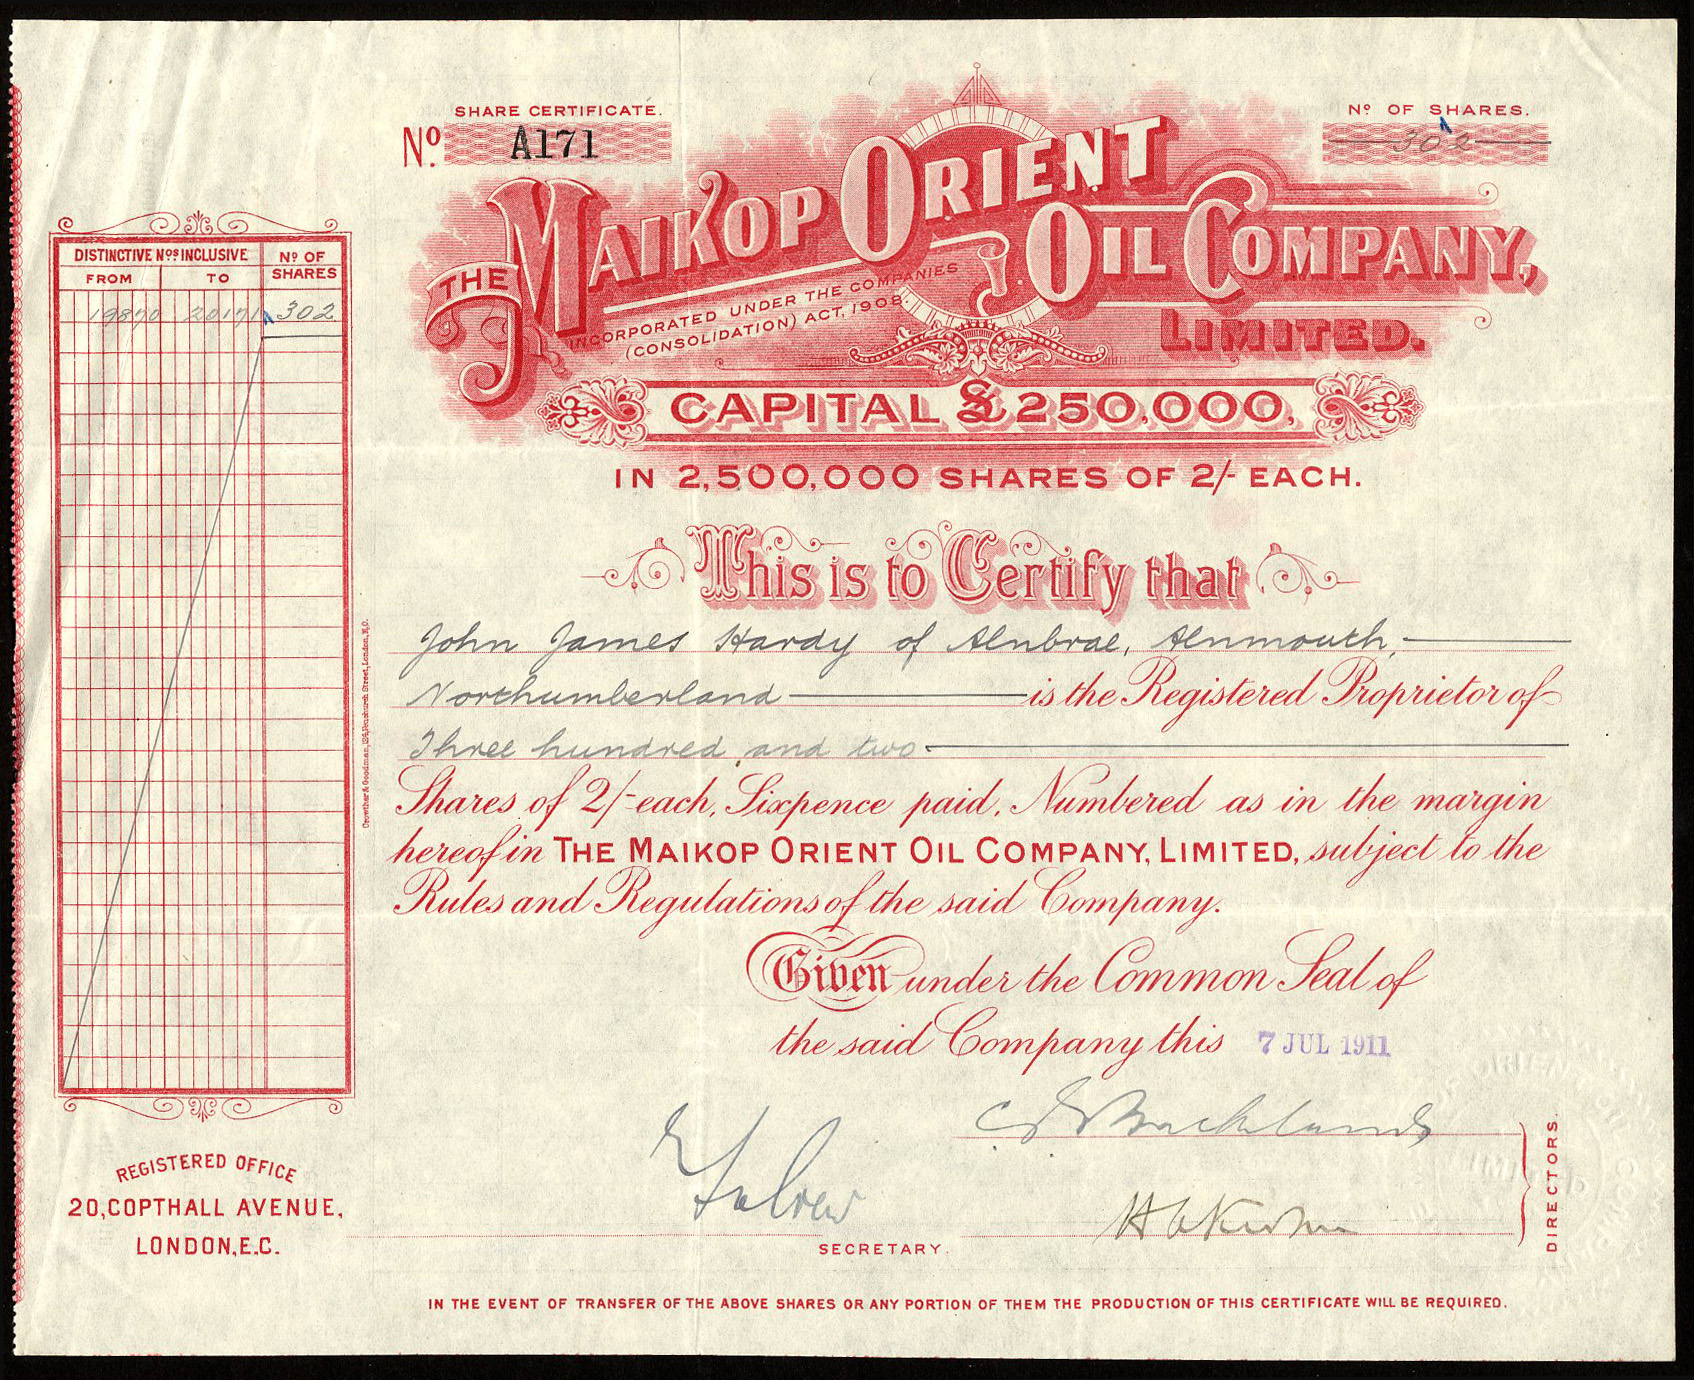 SHARE CERTIFICATE.
Nº. A171
Nº OF SHARES.
302
THE MAIKOP ORIENT OIL COMPANY, LIMITED.
INCORPORATED UNDER THE COMPANIES
(CONSOLIDATION) ACT, 1908.
CAPITAL £250,000,
IN 2,500,000 SHARES OF 2/- EACH.
DISTINCTIVE Nºs INCLUSIVE
FROM TO
Nº OF SHARES
19870 20171 302
This is to Certify that
John James Hardy of Alnbrae, Alnmouth,
Northumberland is the Registered Proprietor of
Three hundred and two
Shares of 2/- each, Sixpence paid, Numbered as in the margin
hereof in THE MAIKOP ORIENT OIL COMPANY, LIMITED, subject to the
Rules and Regulations of the said Company.
Given under the Common Seal of
the said Company this 7 JUL 1911
DIRECTORS.
SECRETARY.
REGISTERED OFFICE
20, COPTHALL AVENUE,
LONDON, E.C.
IN THE EVENT OF TRANSFER OF THE ABOVE SHARES OR ANY PORTION OF THEM THE PRODUCTION OF THIS CERTIFICATE WILL BE REQUIRED.
Crowther & Goodman, 124, Fenchurch Street, London, E.C.